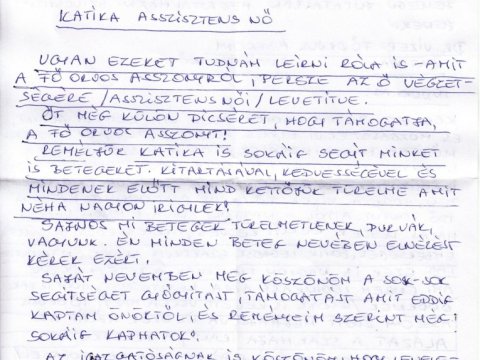 KATIKA ASSZISZTENS NŐ
UGYAN EZEKET TUDNÁM LEIRNI RÓLA IS - AMIT
A FŐ ORVOS ASSZONYRÓL, PERSZE AZ Ő VÉGZET-
SÉGÉRE /ASSZISZTENS NŐI/ LEVETITVE.
ŐT MÉG KÜLÖN DICSÉRET, HOGY TÁMOGATJA,
A FŐ ORVOS ASSZONYT!
REMÉLJÜK KATIKA IS SOKÁIG SEGIT MINKET
IS BETEGEKET. KITARTÁSÁVAL, KEDVESSÉGÉVEL ÉS
MINDENEK ELŐTT MIND KETTŐJÜK TÜRELME AMIT
NÉHA NAGYON IRIGYLEK!
SAJNOS MI BETEGEK TÜRELMETLENEK, DURVÁK,
VAGYUNK. ÉN MINDEN BETEG NEVÉBEN ELNÉZÉST
KÉREK EZÉRT.
SAJÁT NEVEMBEN MEG KÖSZÖNÖM A SOK-SOK
SEGITSÉGET GYÓGYITÁST, TÁMOGATÁST AMIT EDDIG
KAPTAM ÖNÖKTŐL, ÉS REMÉNYEIM SZERINT MÉG
SOKÁIG KAPHATOK!
AZ IGAZGATÓSÁGNAK IS KÖSZÖNÖM, HOGY